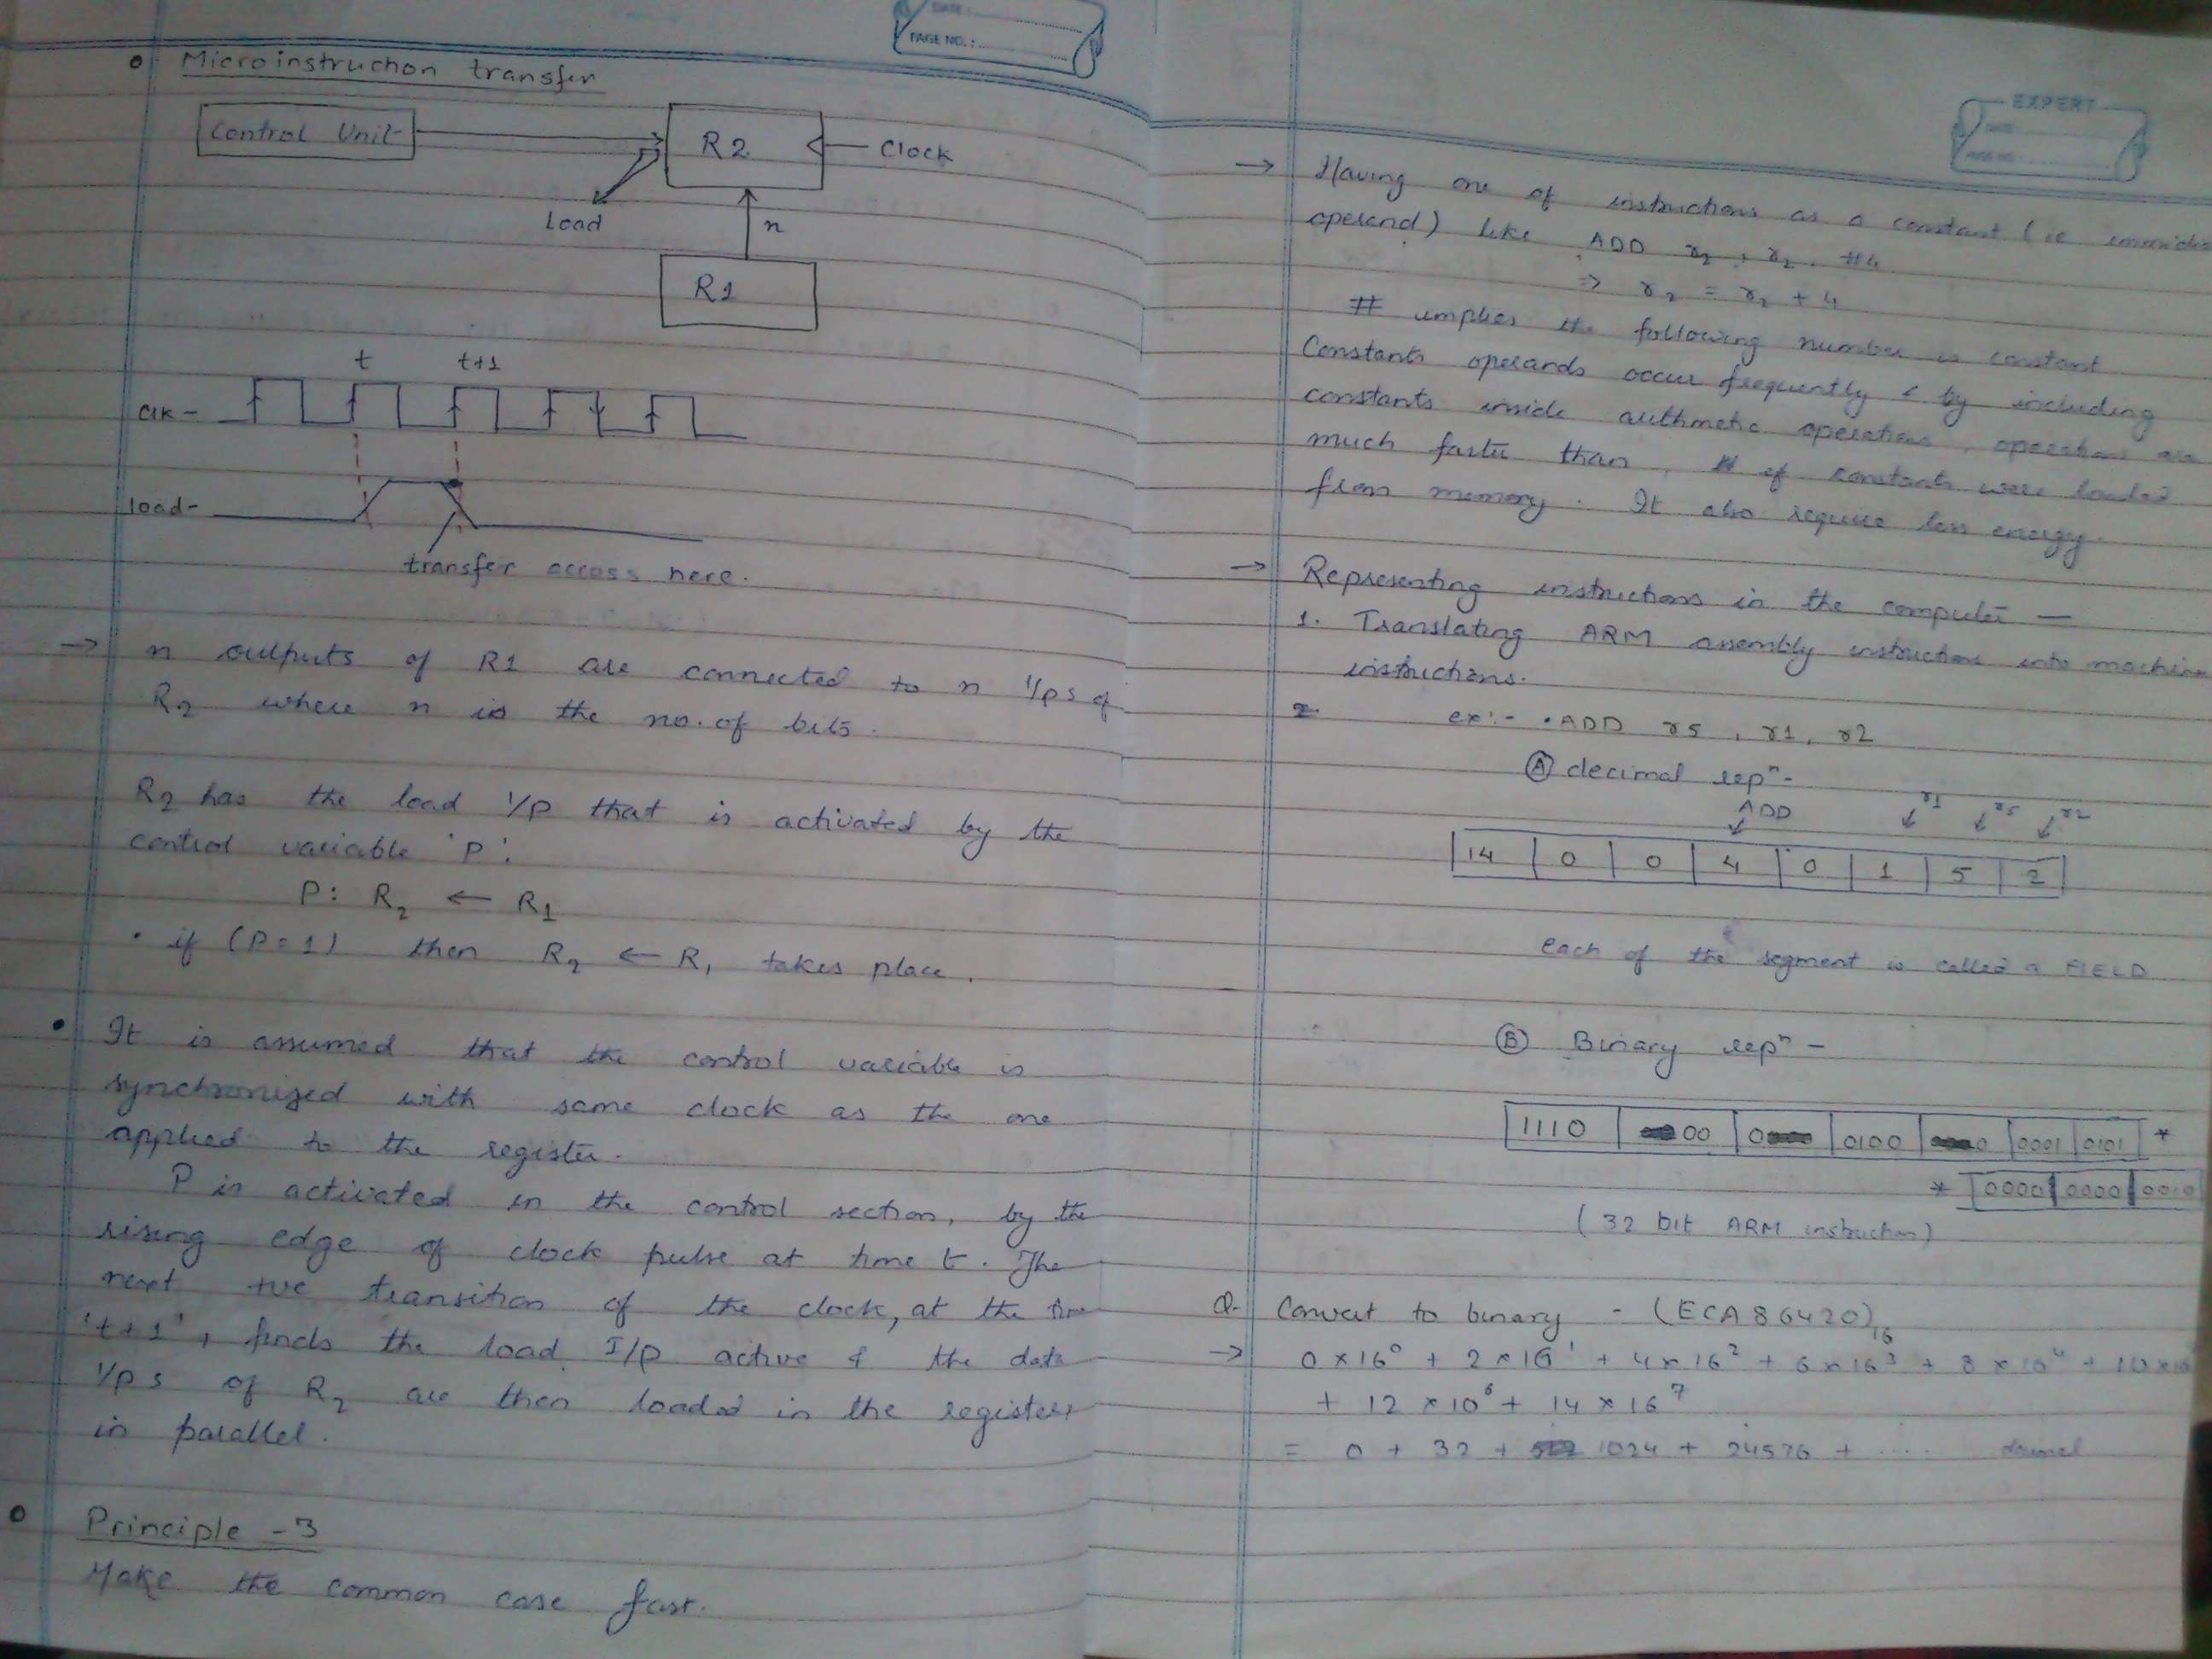 DATE :
PAGE NO. :
Microinstruction transfer
Control Unit
R2
Clock
Load
n
R1
t
t+1
Clk -
load -
transfer occoss here.
→ n outputs of R1 are connected to n I/ps of
R2 where n is the no. of bits.
R2 has the load I/p that is activated by the
control variable 'P'.
P: R2 ← R1
• if (P=1) then R2 ← R1 takes place.
• It is assumed that the control variable is
synchronized with same clock as the one
applied to the register.
P is activated in the control section, by the
rising edge of clock pulse at time t. The
next +ve transition of the clock, at the time
't+1', finds the load I/p active & the data
I/ps of R2 are then loaded in the register
in parallel.
Principle - 3
Make the common case fast.
EXPERT
DATE :
PAGE NO. :
→ Having one of instructions as a constant (ie immidia
operand) like ADD r2, r2, #4
⇒ r2 = r2 + 4
# implies the following number is constant
Constants operands occur frequently & by including
constants inside arithmetic operations, operations are
much faster than, if constants were loaded
from memory. It also require less energy.
→ Representing instructions in the computer —
1. Translating ARM assembly instructions into machine
instructions.
ex:- • ADD r5, r1, r2
Ⓐ decimal repn -
ADD r1 r5 r2
14 0 0 4 0 1 5 2
each of the segment is called a FIELD
Ⓑ Binary repn -
1110 00 0 0100 0 0001 0101 *
* 0000 0000 0010
(32 bit ARM instruction)
Q. Convert to binary - (ECA86420)16
→ 0 × 16^0 + 2 × 16^1 + 4 × 16^2 + 6 × 16^3 + 8 × 16^4 + 10 × 16
+ 12 × 16^6 + 14 × 16^7
= 0 + 32 + 1024 + 24576 + .... decimal